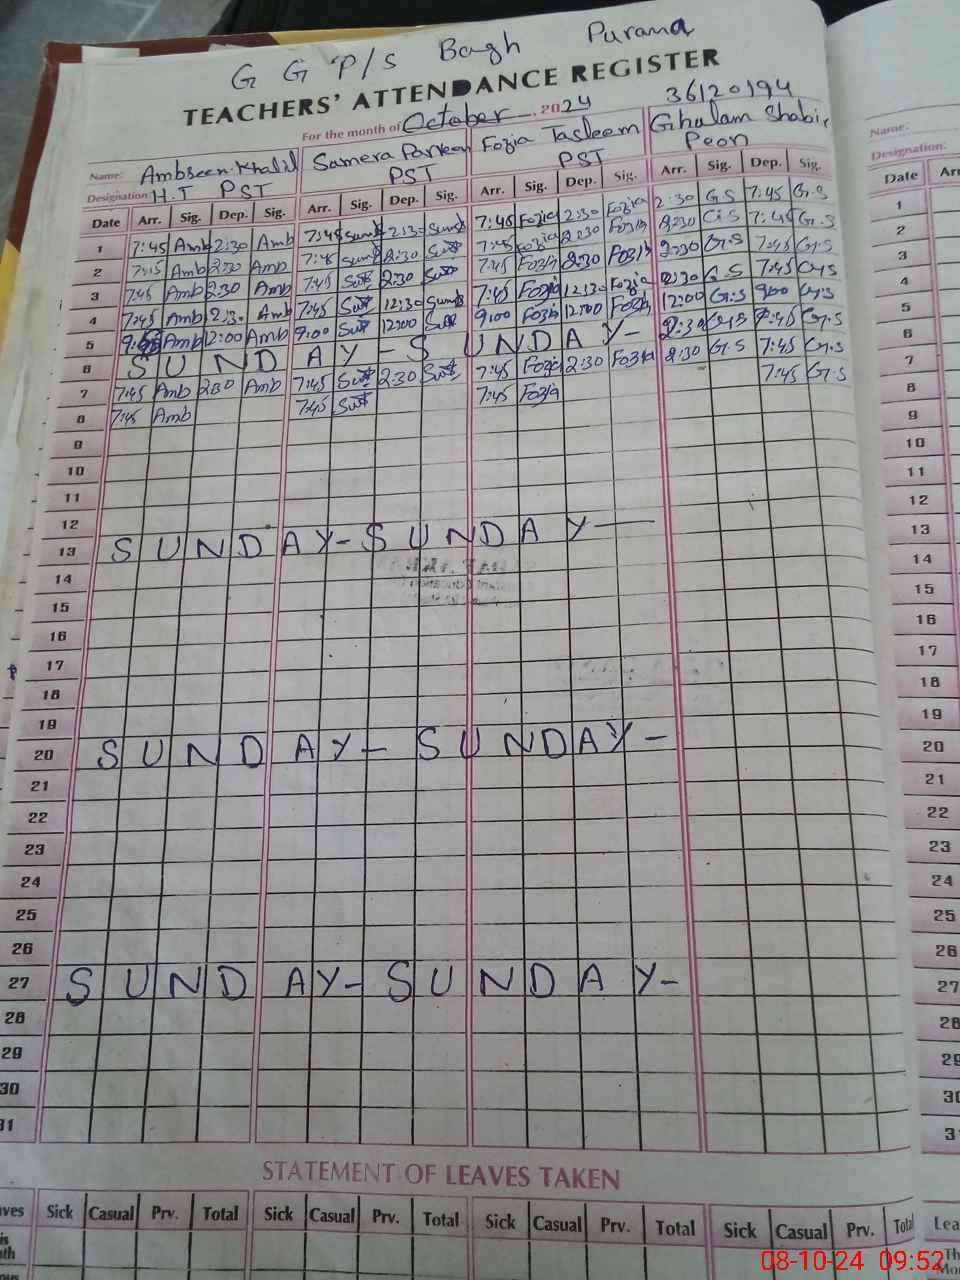 G G P/S Bagh Purana
TEACHERS' ATTENDANCE REGISTER
36120194
For the month of October 2024
Name: Ambreen Khalil Samera Parveen Fozia Tasleem Ghulam Shabir
Designation: H.T PST PST PST Peon
Date Arr. Sig. Dep. Sig. Arr. Sig. Dep. Sig. Arr. Sig. Dep. Sig. Arr. Sig. Dep. Sig.
1 7:45 Amb 2:30 Amb 7:45 2:30 7:45 Fozia 2:30 Fozia 2:30 G S 7:45 G.S
2 7:45 Amb 2:30 Amb 7:45 2:30 7:45 Fozia 2:30 Fozia 2:30 G.S 7:45 G.S
3 7:45 Amb 2:30 Amb 7:45 2:30 7:45 Fozia 2:30 Fozia 2:30 G.S 7:45 G.S
4 7:45 Amb 12:30 Amb 7:45 12:30 7:45 Fozia 12:30 Fozia 12:30 G.S 7:45 G.S
5 Amb 12:00 Amb 9:00 12:00 9:00 Fozia 12:00 Fozia 12:00 G.S 9:00 G.S
6 SUNDAY - SUNDAY - 2:30 G.S 7:45 G.S
7 7:45 Amb 2:30 Amb 7:45 2:30 7:45 Fozia 2:30 Fozia 2:30 G.S 7:45 G.S
8 7:45 Amb 7:45 7:45 Fozia 7:45 G.S
9
10
11
12
13 SUNDAY - SUNDAY —
14
15
16
17
18
19
20 SUNDAY - SUNDAY -
21
22
23
24
25
26
27 SUNDAY - SUNDAY -
28
29
30
31
STATEMENT OF LEAVES TAKEN
Sick Casual Prv. Total Sick Casual Prv. Total Sick Casual Prv. Total Sick Casual Prv. Total
Name:
Designation:
Date
1
2
3
4
5
6
7
8
9
10
11
12
13
14
15
16
17
18
19
20
21
22
23
24
25
26
27
28
08-10-24 09:52